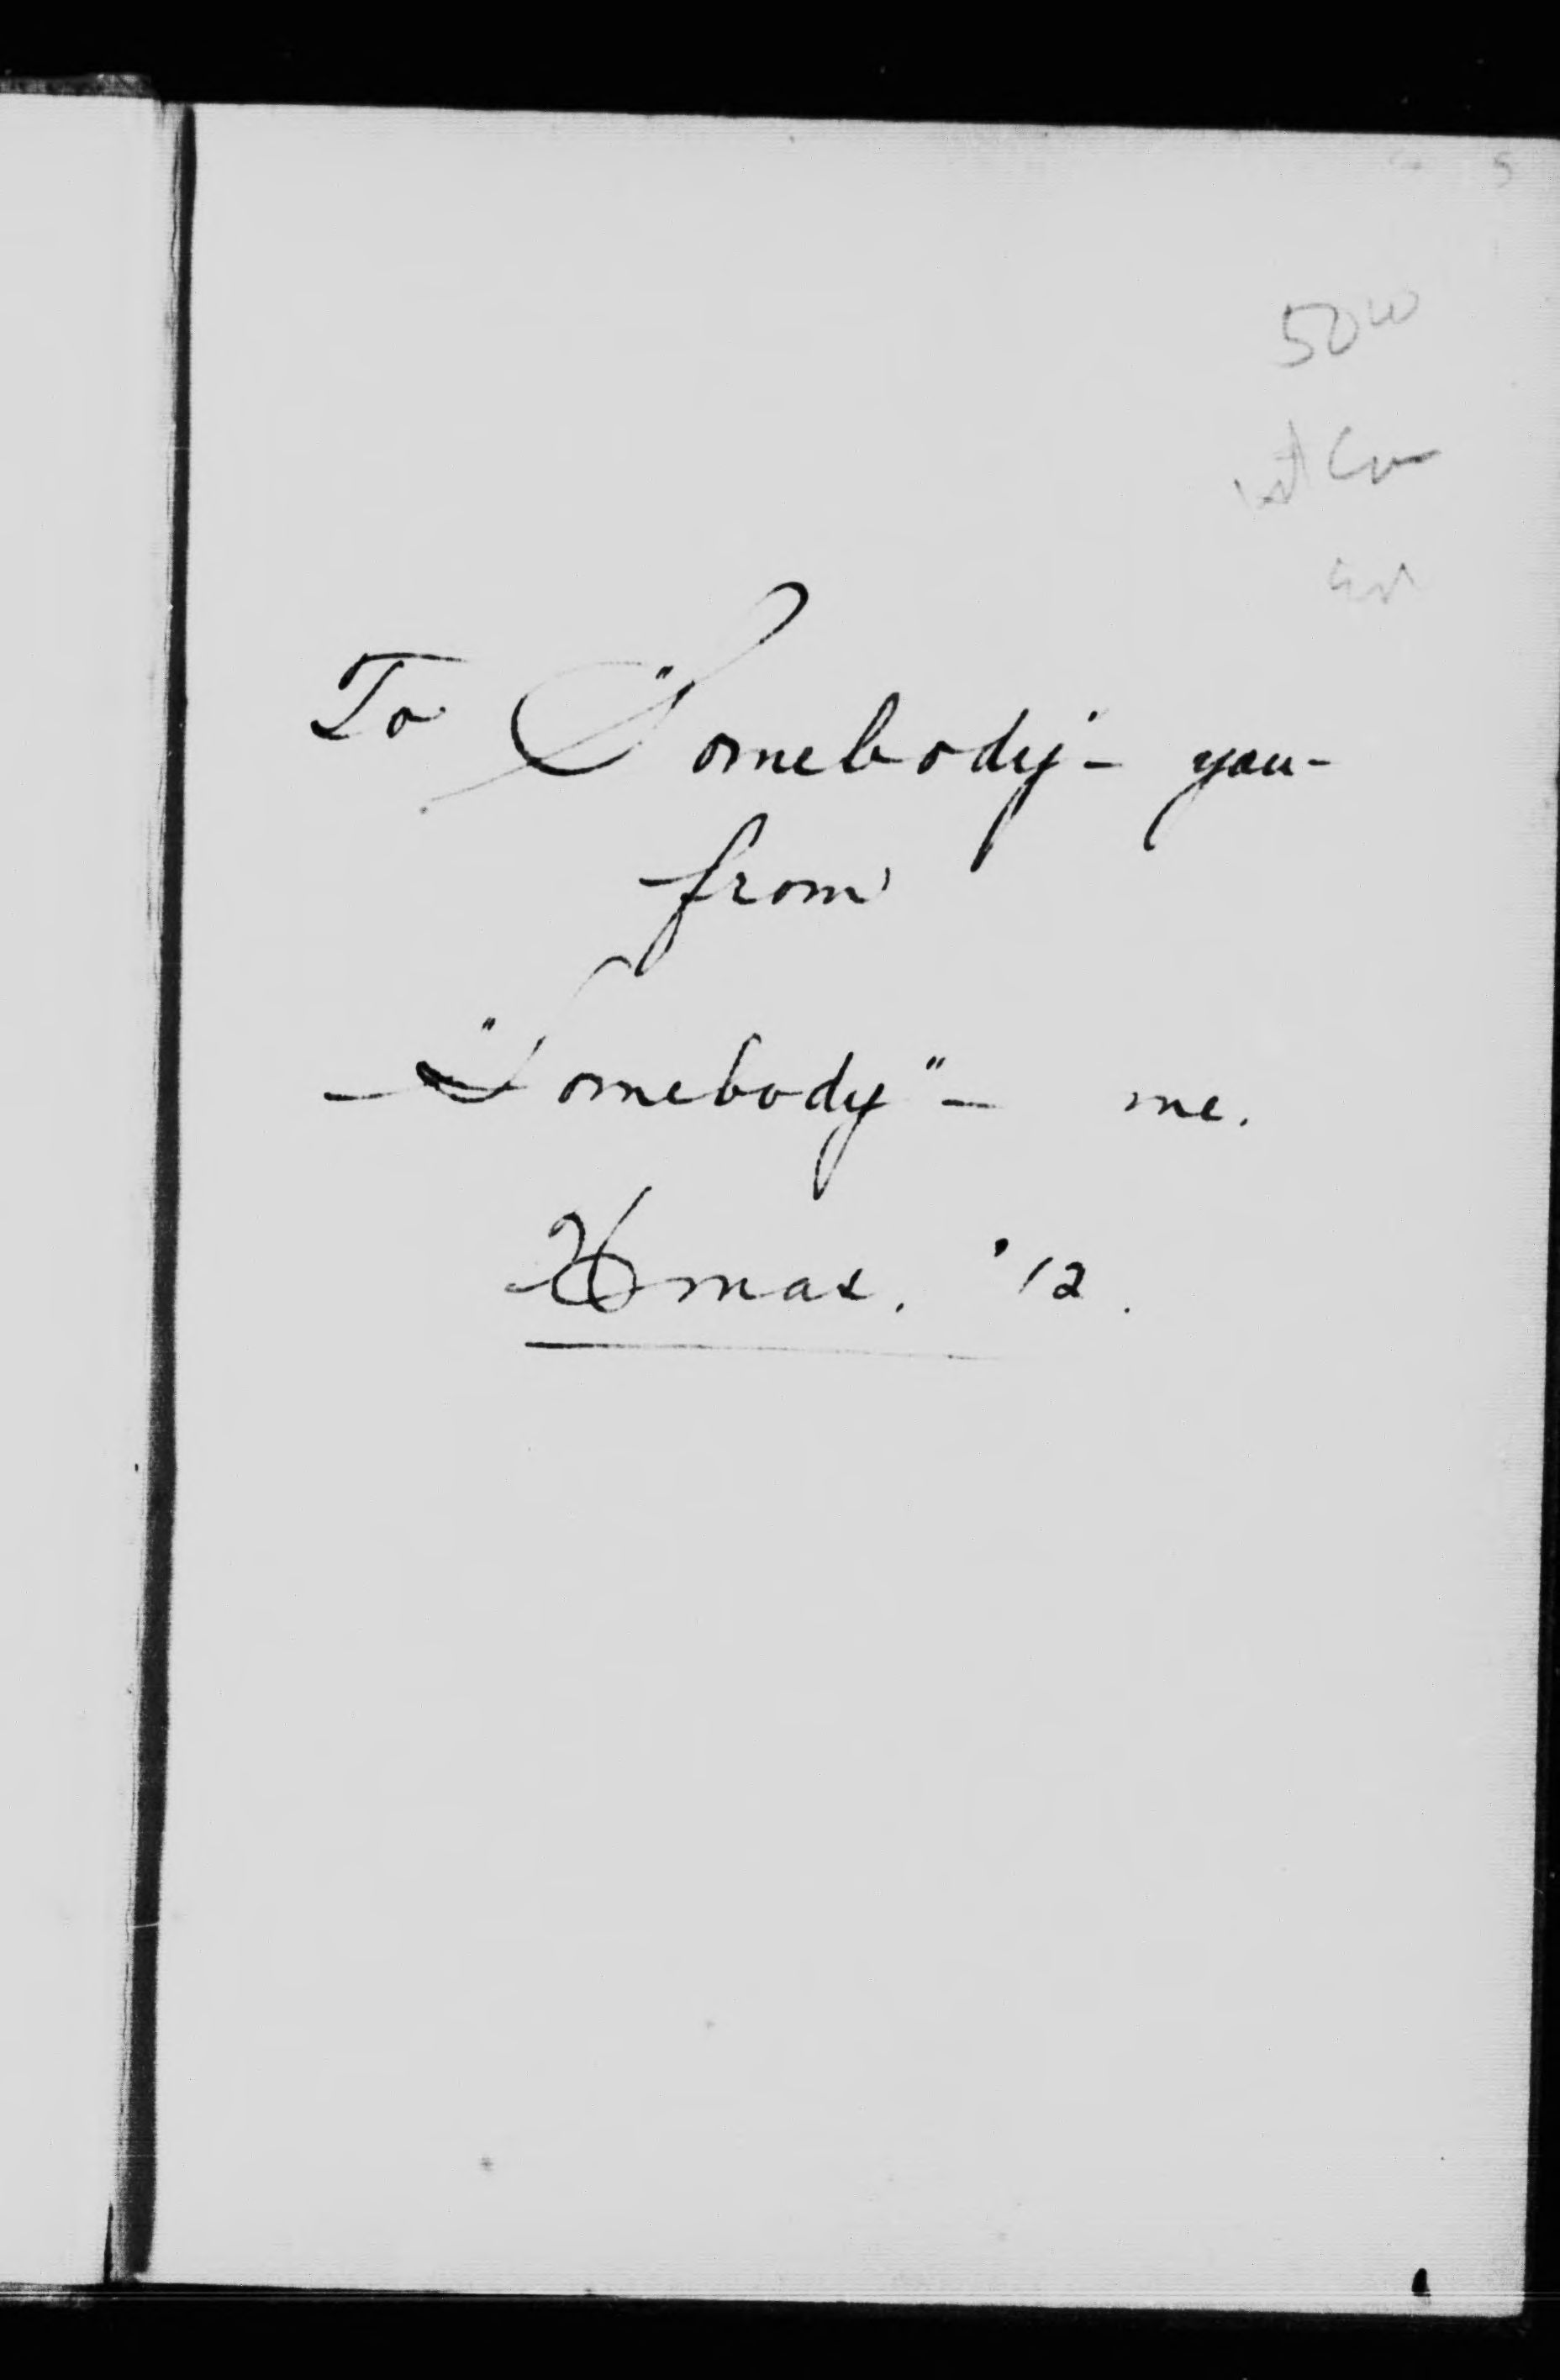 50 00
1st Can
ed
To "Somebody" - you -
from
- "Somebody" - me.
Xmas. '12.